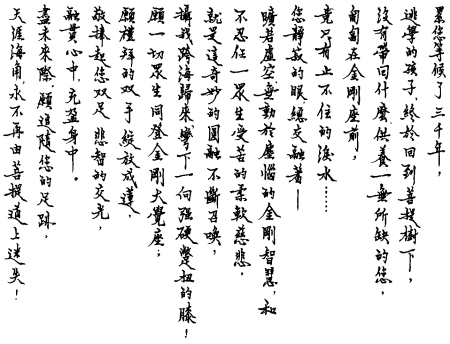 累您等候了三千年，
逃學的孩子終於回到菩提樹下，
沒有帶回什麼供養一無所缺的您，
匍匐在金剛座前，
竟只有止不住的淚水……
您靜寂的眼總交融著——
曠若虛空無動於塵惱的金剛智慧，和
不忍任一眾生受苦的柔軟慈悲，
就是這奇妙的圓融不斷召喚，
攝我跨海歸來彎下一向強硬彆扭的膝！
願一切眾生同登金剛大覺座；
願禮拜的双手綻放成蓮，
敬捧起您双足悲智的交光，
融貫心中，充盈身中。
盡未來際願追隨您的足跡，
天涯海角，永不再由菩提道上迷失！